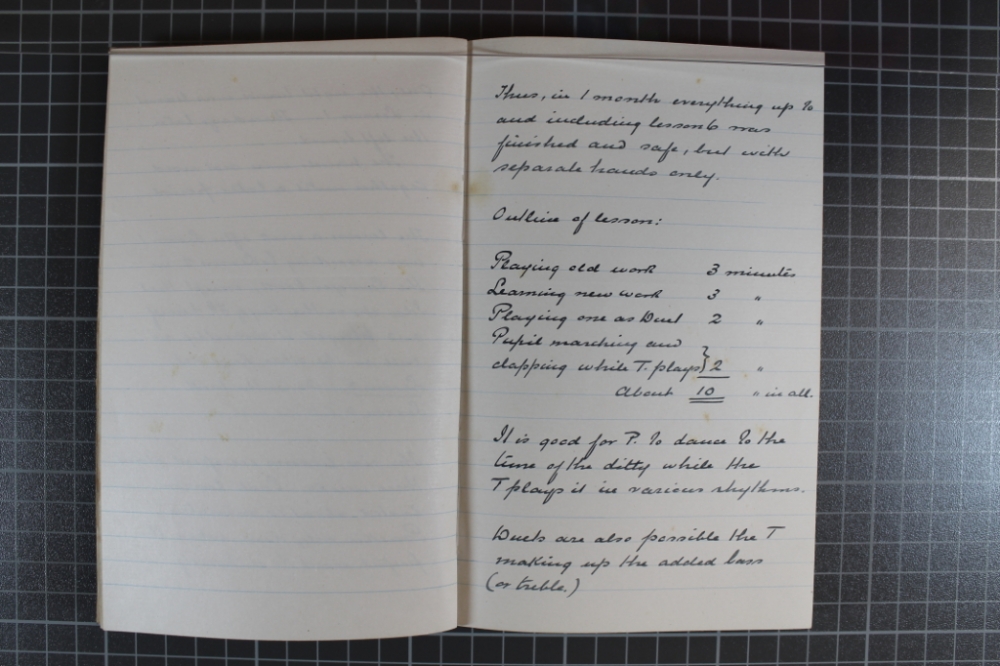 Thus, in 1 month everything up to
and including lesson 6 was
finished and safe, but with
separate hands only.
Outline of lesson:
Playing old work 3 minutes
Learning new work 3 "
Playing one as Duet 2 "
Pupil marching and
clapping while T. plays } 2 "
About 10 " in all.
It is good for P. to dance to the
time of the ditty while the
T plays it in various rhythms.
Duets are also possible the T
making up the added bass
(or treble.)